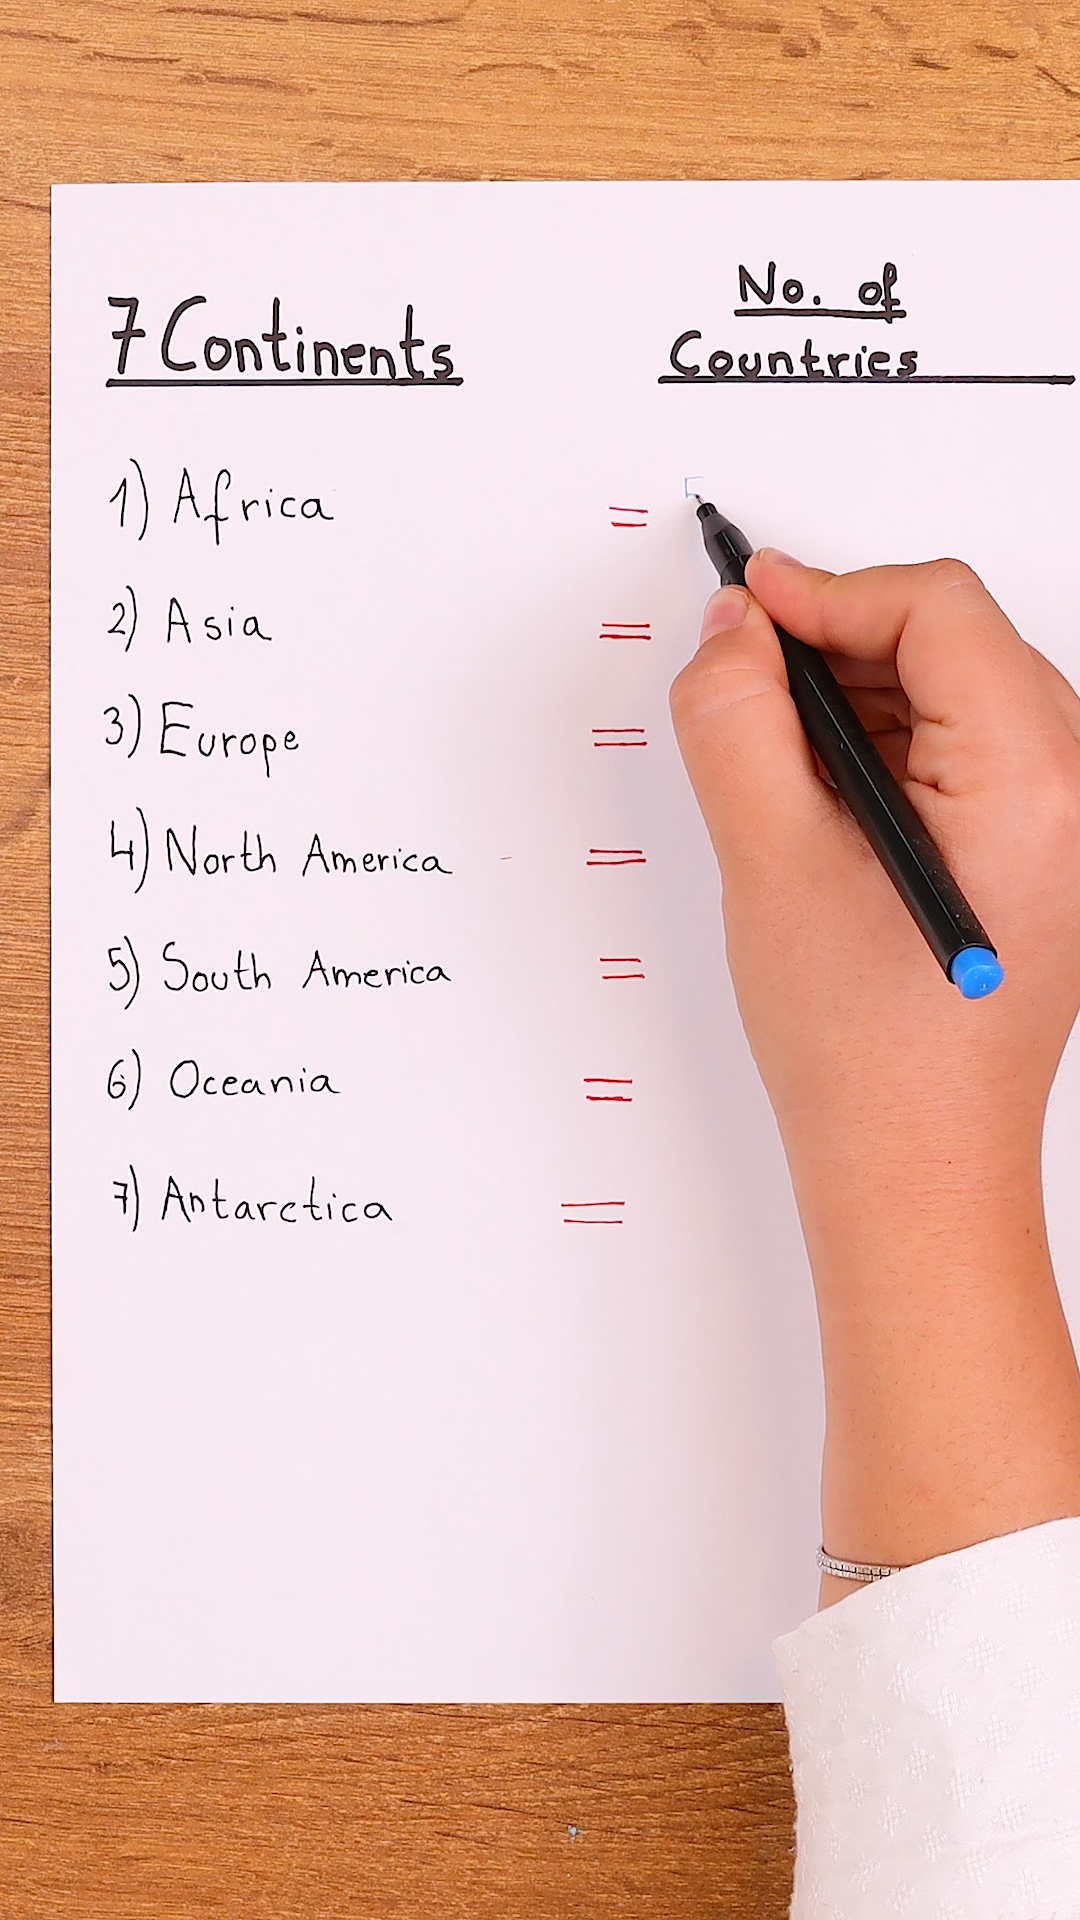 7 Continents
No. of
Countries
1) Africa =
2) Asia =
3) Europe =
4) North America - =
5) South America =
6) Oceania =
7) Antarctica =